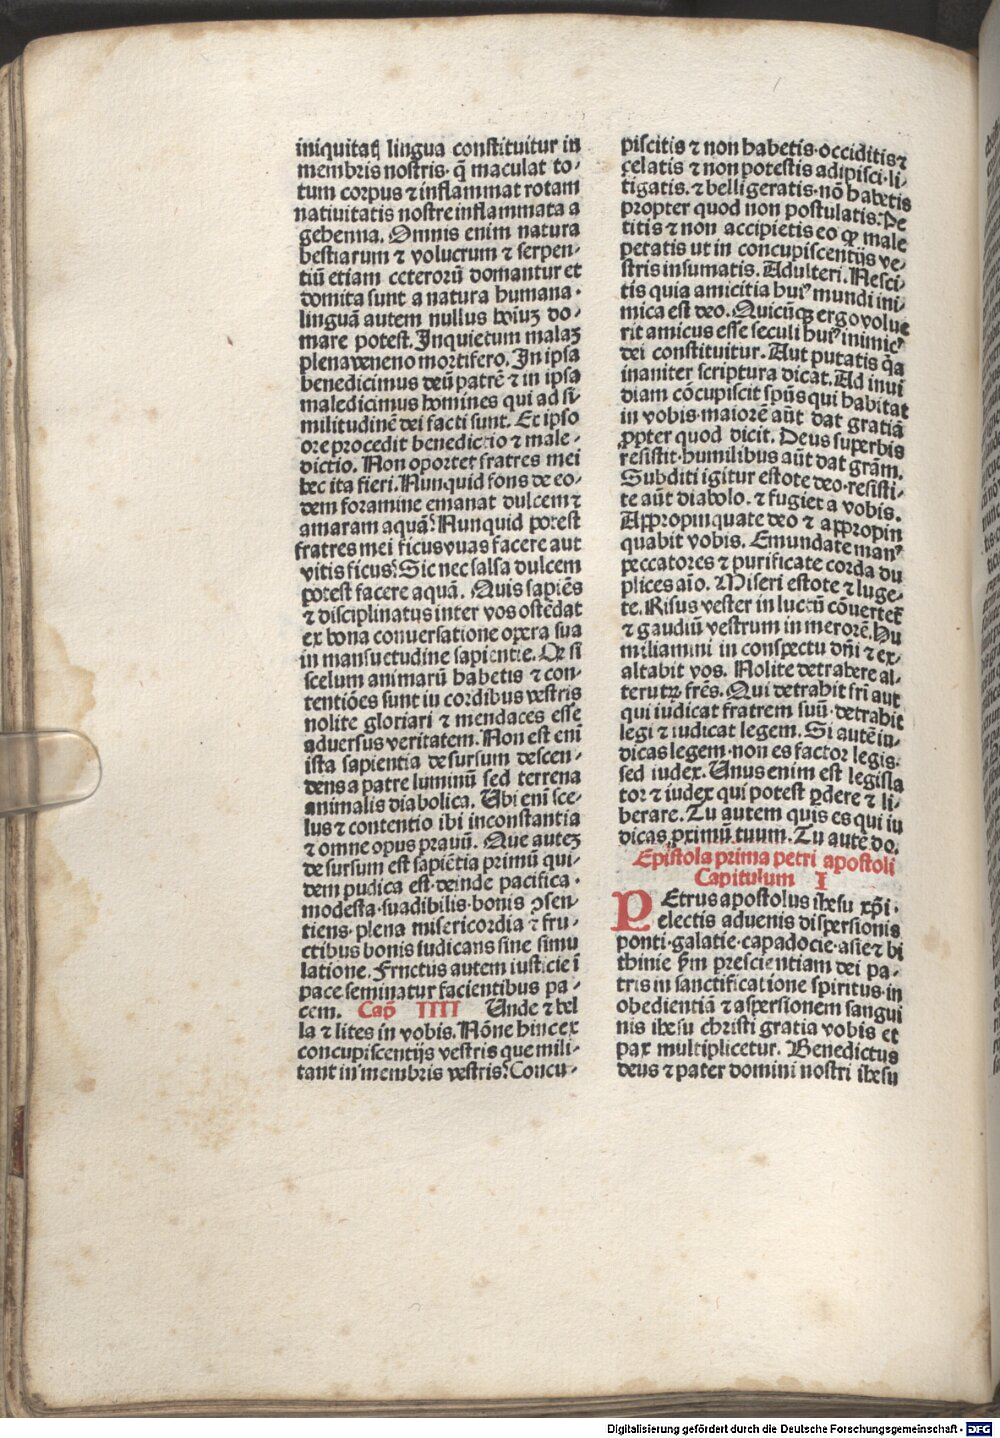 iniquitatꝭ lingua constituitur in
membris nostris· q̄ maculat to-
tum corpus ⁊ inflammat rotam
nativitatis nostre inflammata a
gehenna. Omnis enim natura
bestiarum ⁊ volucrum ⁊ serpen-
tiū etiam ceterorū domantur et
domita sunt a natura humana·
linguā autem nullus hoīuȝ do-
mare potest. Inquietum malaȝ
plena veneno mortifero. In ipsa
benedicimus deū ⁊ patrē ⁊ in ipsa
maledicimus homines qui ad si-
militudinē dei facti sunt. Ex ipso
ore procedit benedictio ⁊ male-
dictio. Non oportet fratres mei
hec ita fieri. Nunquid fons de eo-
dem foramine emanat dulcem ⁊
amaram aquā? Nunquid potest
fratres mei ficus vuas facere aut
vitis ficus? Sic nec salsa dulcem
potest facere aquā. Quis sapiēs
⁊ disciplinatus inter vos ostēdat
ex bona conuersatione opera sua
in mansuetudine sapientie. Qr si
scelum animarū habetis ⁊ con-
tentiōes sunt in cordibus vestris
nolite gloriari ⁊ mendaces esse
adversus veritatem. Non est eni
ista sapientia desursum descen-
dens a patre luminū sed terrena
animalis diabolica. Ubi eni sce-
lus ⁊ contentio ibi inconstantia
⁊ omne opus prauū. Que auteȝ
desursum est sapiētia primū qui-
dem pudica est· deinde pacifica·
modesta· suadibilis· bonis ꝯsen-
tiens· plena misericordia ⁊ fru-
ctibus bonis iudicans sine simu
latione. Frnctus autem iusticie ī
pace seminatur facientibus pa-
cem. Cap̄ IIII Unde ⁊ bel
la ⁊ lites in vobis. Nōne hinc ex
concupiscentijs vestris que mili-
tant in membris vestris? Concu-
piscitis ⁊ non habetis· occiditis ⁊
çelatis ⁊ non potestis adipisci· li-
tigatis. ⁊ belligeratis· nō habetis
propter quod non postulatis. Pe
titis ⁊ non accipietis eo ꝙ male
petatis ut in concupiscentijs ve-
stris insumatis. Adulteri. Nesci-
tis quia amicitia huiꝰ mundi ini-
mica est deo. Quicūqꝫ ergo volue
rit amicus esse seculi huiꝰ inimicꝰ
dei constituitur. Aut putatis q̄a
inaniter scriptura dicat. Ad inui
diam cōcupiscit spūs qui habitat
in vobis· maiorē aūt dat gratiā
ꝓpter quod dicit. Deus superbis
resistit· humilibus aūt dat grām.
Subditi igitur estote deo· resisti-
te aūt diabolo. ⁊ fugiet a vobis.
Appropinquate deo ⁊ appropin
quabit vobis. Emundate manꝰ
peccatores ⁊ purificate corda du
plices aīo. Miseri estote ⁊ luge-
te. Risus vester in luctū cōuertet̄
⁊ gaudiū vestrum in merorē. Hu
miliamini in conspectu dn̄i ⁊ ex-
altabit vos. Nolite detrahere al-
terutrꝫ frēs. Qui detrahit frī aut
qui iudicat fratrem suū· detrahit
legi ⁊ iudicat legem. Si autē iu-
dicas legem· non es factor legis.
sed iudex. Unus enim est legisla
tor ⁊ iudex qui potest ꝑdere ⁊ li-
berare. Tu autem quis es qui iu
dicas proximū tuum. Tu autē do.
Epistola prima petri apostoli
Capitulum I
PEtrus apostolus ihesu xp̄i·
electis aduenis dispersionis
ponti· galatie· capadocie· asie ⁊ bi
thinie ẜm prescientiam dei pa-
tris in sanctificatione spiritus· in
obedientiā ⁊ aspersionem sangui
nis ihesu christi gratia vobis et
pax multiplicetur. Benedictus
deus ⁊ pater domini nostri ihesu
Digitalisierung gefördert durch die Deutsche Forschungsgemeinschaft - DFG